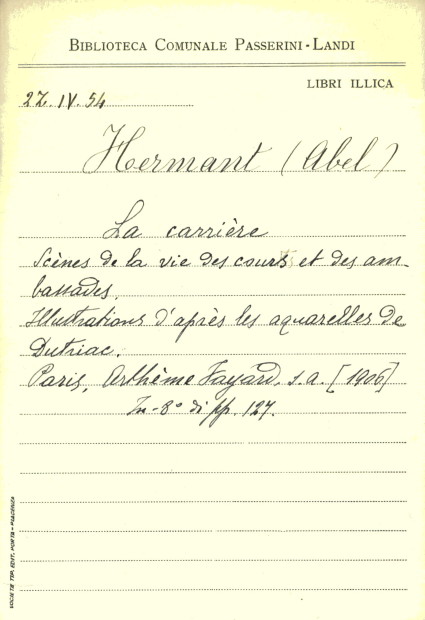 BIBLIOTECA COMUNALE PASSERINI-LANDI
LIBRI ILLICA
22.IV.54
Hermant (Abel)
La carrière
Scènes de la vie des cours et des am-
bassades.
Illustrations d'après les aquarelles de
Dutriac.
Paris, Arthème Fayard, s.a. [1906]
In-8° di pp. 127.
SOCIETÀ TIP. EDIT. PORTA - PIACENZA